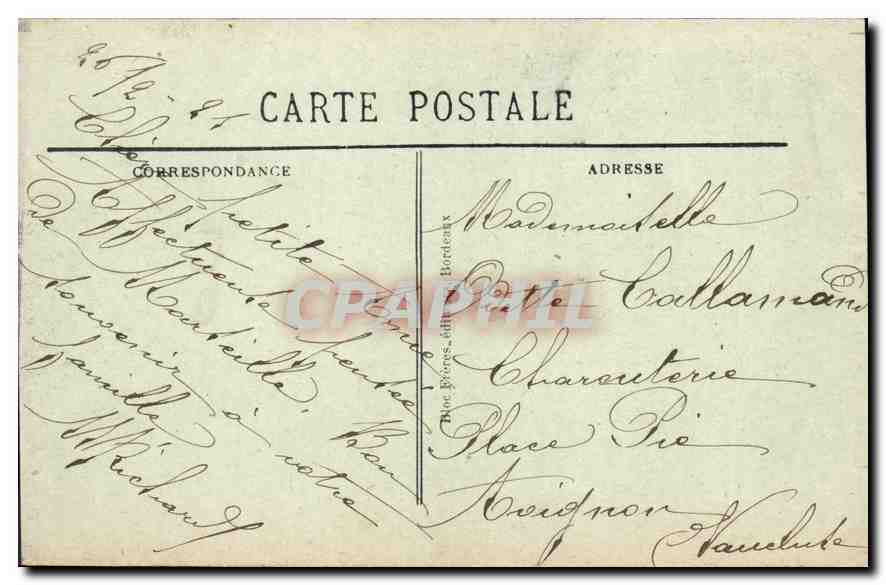 26/2-25
CARTE POSTALE
CORRESPONDANCE
ADRESSE
Chère petite Amie
Affectueuse pensée
de Marseille. Bon
souvenir à votre
famille
M Richard
Bloc Frères, édit. Bordeaux
Mademoiselle
Odette Callamand
Charcuterie
Place Pie
Avignon
Vaucluse
CPAPHIL